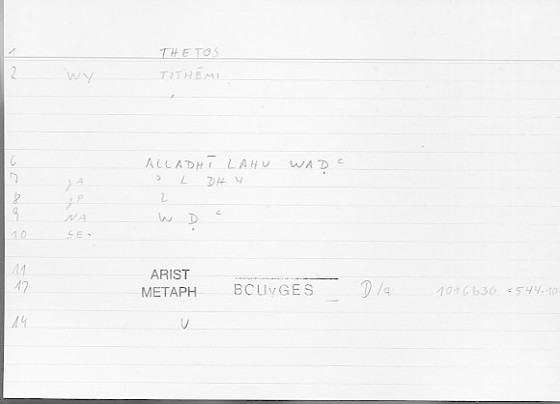 1 THETOS
2 WY TITHĒMI
6 ALLADHĪ LAHU WAḌ ᶜ
7 gA ʾ L DH Y
8 gP L
9 NA W Ḍ ᶜ
10 SE-
11 ARIST
12 METAPH BOUYGES D/a 1016b30 = 544.10
14 V